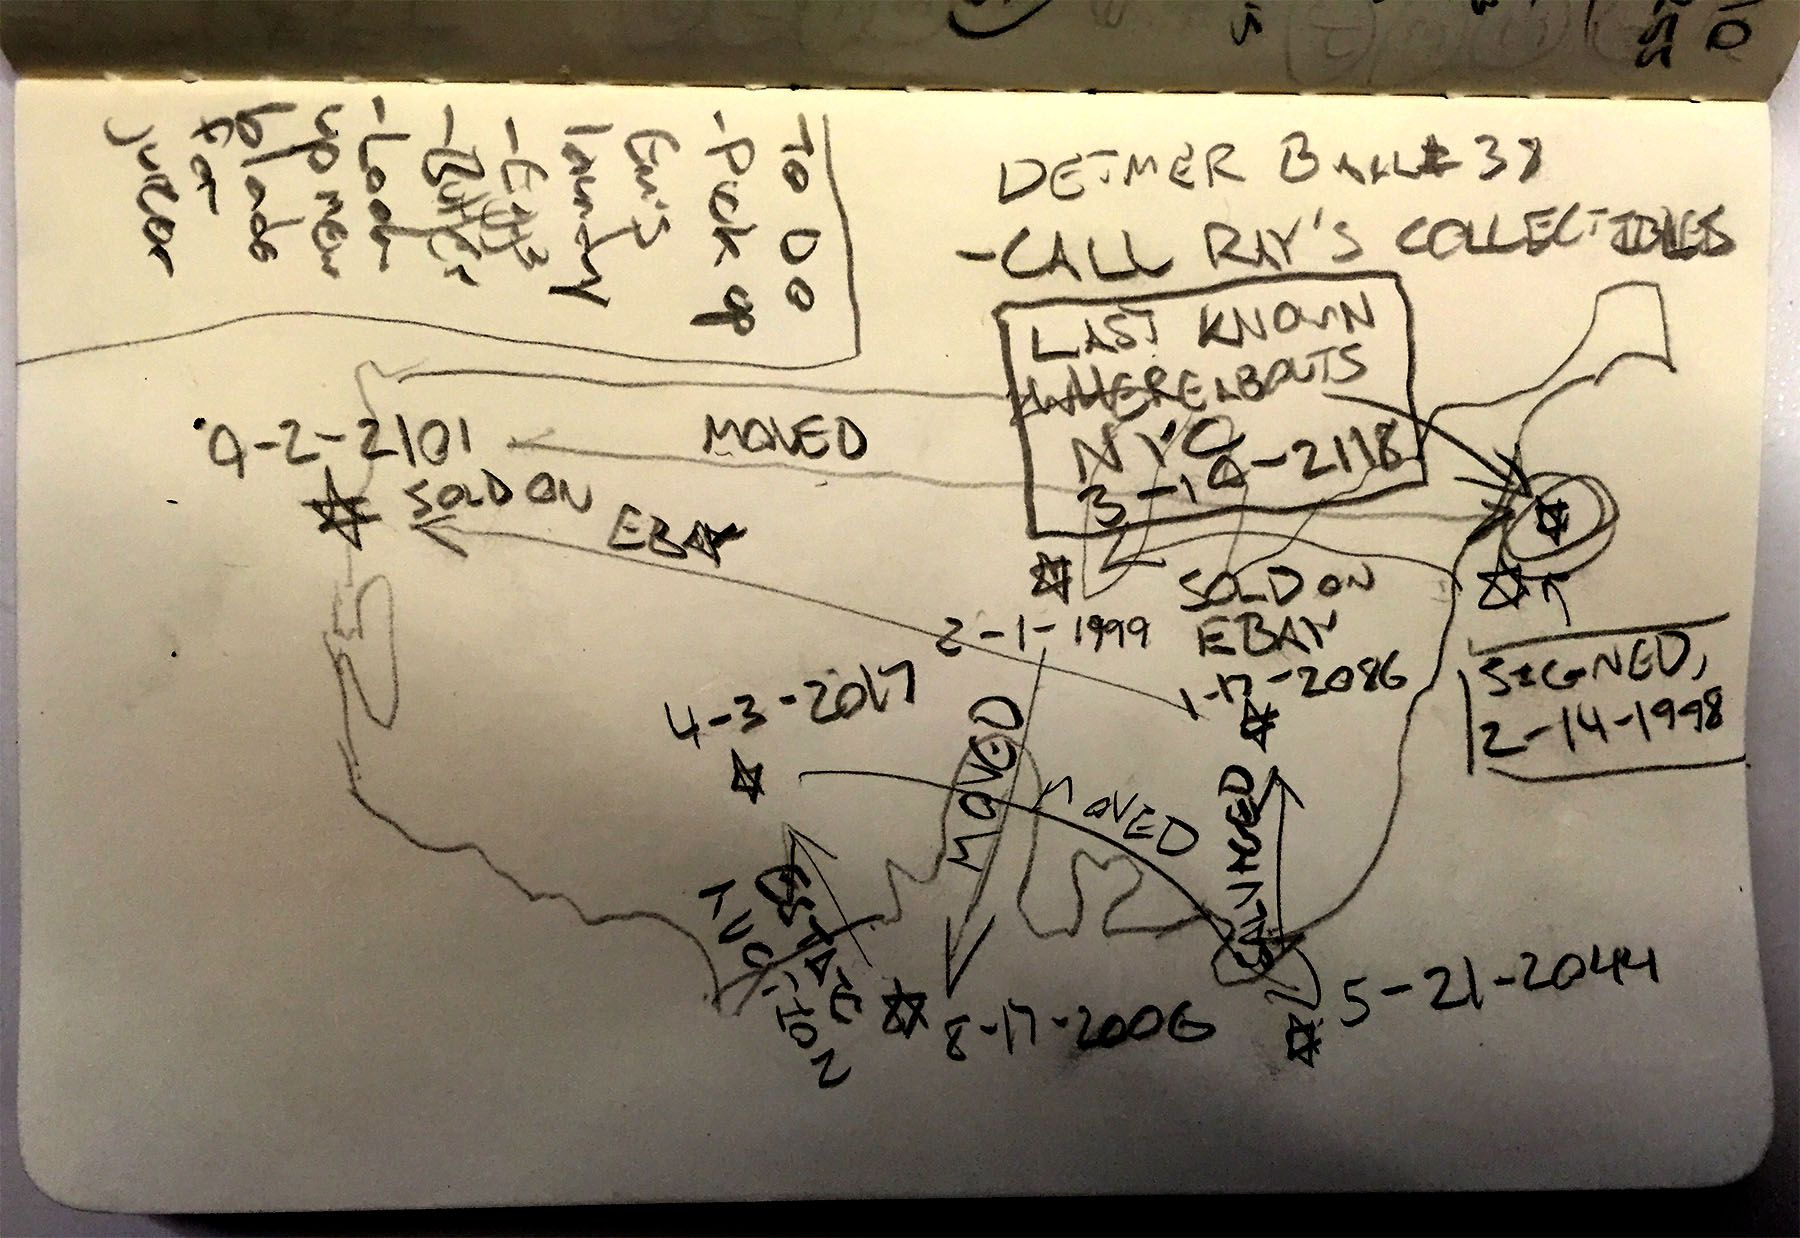 TO DO
- Pick up
Em's
laundry
- EGGS
- Butter
- Look
up new
blade
for
juicer
DETMER BALL #38
- CALL RAY'S COLLECTIBLES
LAST KNOWN
WHEREABOUTS
NYC
3-10-2118
9-2-2101
MOVED
SOLD ON
EBAY
2-1-1999
SOLD ON
EBAY
1-17-2086
SIGNED,
2-14-1998
4-3-2017
MOVED
MOVED
SALVAGED
ESTATE
5-21-2044
8-17-2006